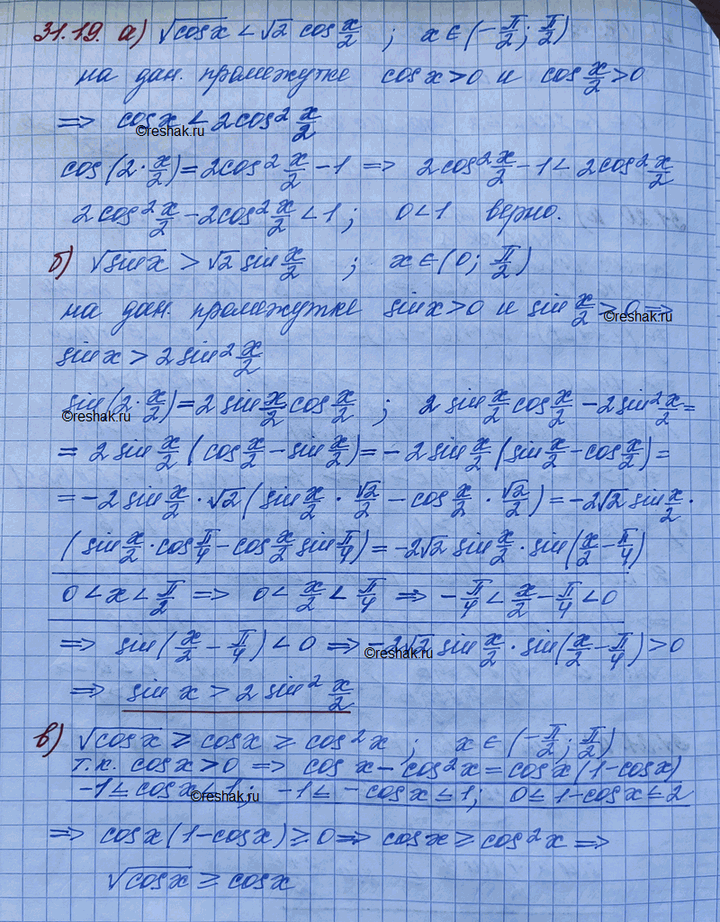 31.19. а) √cosx < √2 cos x/2 ; x ∈ (-π/2; π/2)
на дан. промежутке cosx>0 и cos x/2 >0
=> cosx < 2cos² x/2
©reshak.ru
cos(2·x/2) = 2cos² x/2 -1 => 2cos² x/2 -1 < 2cos² x/2
2cos² x/2 - 2cos² x/2 < 1; 0<1 верно.
б) √sinx > √2 sin x/2 ; x ∈ (0; π/2)
на дан. промежутке sinx>0 и sin x/2 >0 =>
©reshak.ru
sinx > 2sin² x/2
sin(2·x/2) = 2sin x/2 cos x/2 ; 2sin x/2 cos x/2 - 2sin² x/2 =
©reshak.ru
= 2sin x/2 (cos x/2 - sin x/2) = -2sin x/2 (sin x/2 - cos x/2) =
= -2sin x/2 · √2 (sin x/2 · √2/2 - cos x/2 · √2/2) = -2√2 sin x/2 ·
(sin x/2 · cos π/4 - cos x/2 sin π/4) = -2√2 sin x/2 · sin(x/2 - π/4)
0 < x < π/2 => 0 < x/2 < π/4 => -π/4 < x/2 - π/4 < 0
=> sin(x/2 - π/4) < 0 => -2√2 sin x/2 · sin(x/2 - π/4) > 0
©reshak.ru
=> sin x > 2 sin² x/2
в) √cosx ≥ cosx ≥ cos²x ; x ∈ (-π/2; π/2)
т.к. cosx>0 => cos x - cos²x = cosx(1-cosx)
-1 ≤ cosx ≤ 1; -1 ≤ -cosx ≤ 1; 0 ≤ 1-cosx ≤ 2
©reshak.ru
=> cosx(1-cosx) ≥ 0 => cosx ≥ cos²x =>
√cosx ≥ cosx